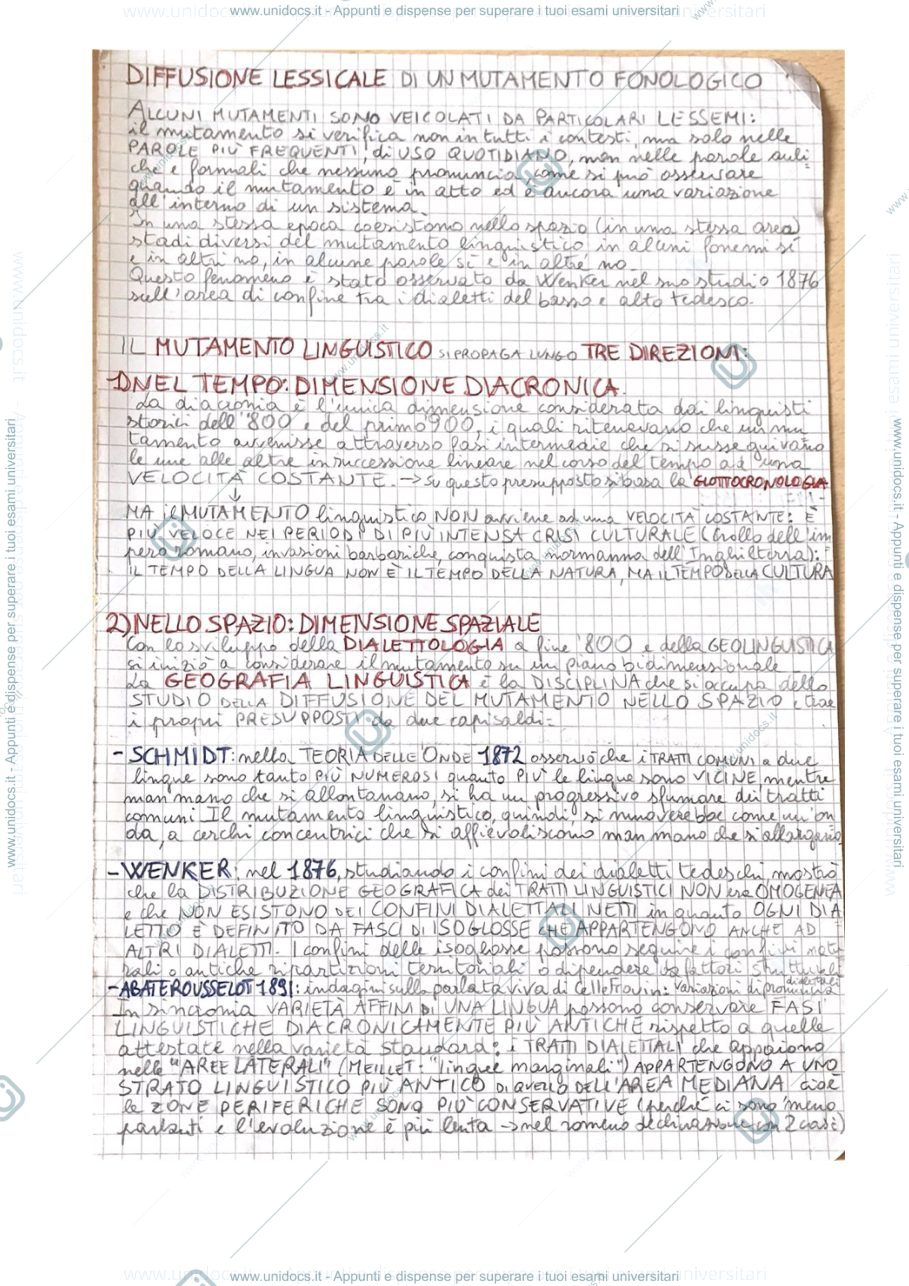 www.unidocs.it - Appunti e dispense per superare i tuoi esami universitari
DIFFUSIONE LESSICALE DI UN MUTAMENTO FONOLOGICO
ALCUNI MUTAMENTI SONO VEICOLATI DA PARTICOLARI LESSEMI:
il mutamento si verifica non in tutti i contesti, ma solo nelle
PAROLE PIÙ FREQUENTI, di USO QUOTIDIANO, non nelle parole auli-
che e formali che nessuno pronuncia come si può osservare
quando il mutamento è in atto ed è ancora una variazione
all'interno di un sistema.
In una stessa epoca coesistono nello spazio (in una stessa area)
stadi diversi del mutamento linguistico in alcuni fonemi sì
e in altri no, in alcune parole sì e in altre no.
Questo fenomeno è stato osservato da Wenker nel suo studio 1876
sull'area di confine tra i dialetti del basso e alto tedesco.
IL MUTAMENTO LINGUISTICO SI PROPAGA LUNGO TRE DIREZIONI:
1) NEL TEMPO: DIMENSIONE DIACRONICA.
La diacronia è l'unica dimensione considerata dai linguisti
storici dell'800 e del primo 900, i quali ritenevano che un mu
tamento avvenisse attraverso fasi intermedie che si susseguivano
le une alle altre in successione lineare nel corso del tempo ad una
VELOCITÀ COSTANTE. -> Su questo presupposto si basa la GLOTTOCRONOLOGIA
↓
MA il MUTAMENTO linguistico NON avviene ad una VELOCITÀ COSTANTE: È
PIÙ VELOCE NEI PERIODI DI PIÙ INTENSA CRISI CULTURALE (crollo dell'im
pero romano, invasioni barbariche, conquista normanna dell'Inghilterra):
IL TEMPO DELLA LINGUA NON È IL TEMPO DELLA NATURA, MA IL TEMPO DELLA CULTURA
2) NELLO SPAZIO: DIMENSIONE SPAZIALE
Con lo sviluppo della DIALETTOLOGIA a fine '800 e della GEOLINGUISTICA
si iniziò a considerare il mutamento su un piano bidimensionale
La GEOGRAFIA LINGUISTICA è la DISCIPLINA che si occupa dello
STUDIO DELLA DIFFUSIONE DEL MUTAMENTO NELLO SPAZIO e trae
i propri PRESUPPOSTI da due capisaldi:
- SCHMIDT: nella TEORIA DELLE ONDE 1872 osservò che i TRATTI COMUNI a due
lingue sono tanto PIÙ NUMEROSI quanto PIÙ le lingue sono VICINE mentre
man mano che si allontanano, si ha un progressivo sfumare dei tratti
comuni Il mutamento linguistico, quindi, si muoverebbe come un'on
da, a cerchi concentrici che si affievoliscono man mano che si allargano
- WENKER: nel 1876, studiando i confini dei dialetti tedeschi, mostrò
che la DISTRIBUZIONE GEOGRAFICA dei TRATTI LINGUISTICI NON era OMOGENEA
e che NON ESISTONO DEI CONFINI DIALETTALI NETTI in quanto OGNI DIA
LETTO È DEFINITO DA FASCI DI ISOGLOSSE CHE APPARTENGONO ANCHE AD
ALTRI DIALETTI. I confini delle isoglosse possono seguire i confini natu
rali o antiche ripartizioni territoriali o dipendere da fattori strutturali
- ABATE ROUSSELOT 1891: indagini sulla parlata viva di Cellefrouin: variazioni di pronuncia dialettali
In sincronia VARIETÀ AFFINI DI UNA LINGUA possono conservare FASI
LINGUISTICHE DIACRONICAMENTE PIÙ ANTICHE rispetto a quelle
attestate nella varietà standard: i TRATTI DIALETTALI che appaiono
nelle "AREE LATERALI" (MEILLET: "lingue marginali") APPARTENGONO A UNO
STRATO LINGUISTICO PIÙ ANTICO DI QUELLO DELL'AREA MEDIANA cioè
le ZONE PERIFERICHE SONO PIÙ CONSERVATIVE (perché ci sono meno
parlanti e l'evoluzione è più lenta -> nel romeno declinazione con 2 casi)
www.unidocs.it - Appunti e dispense per superare i tuoi esami universitari
www.unidocs.it - Appunti e dispense per superare i tuoi esami universitari
www.unidocs.it - Appunti e dispense per superare i tuoi esami universitari